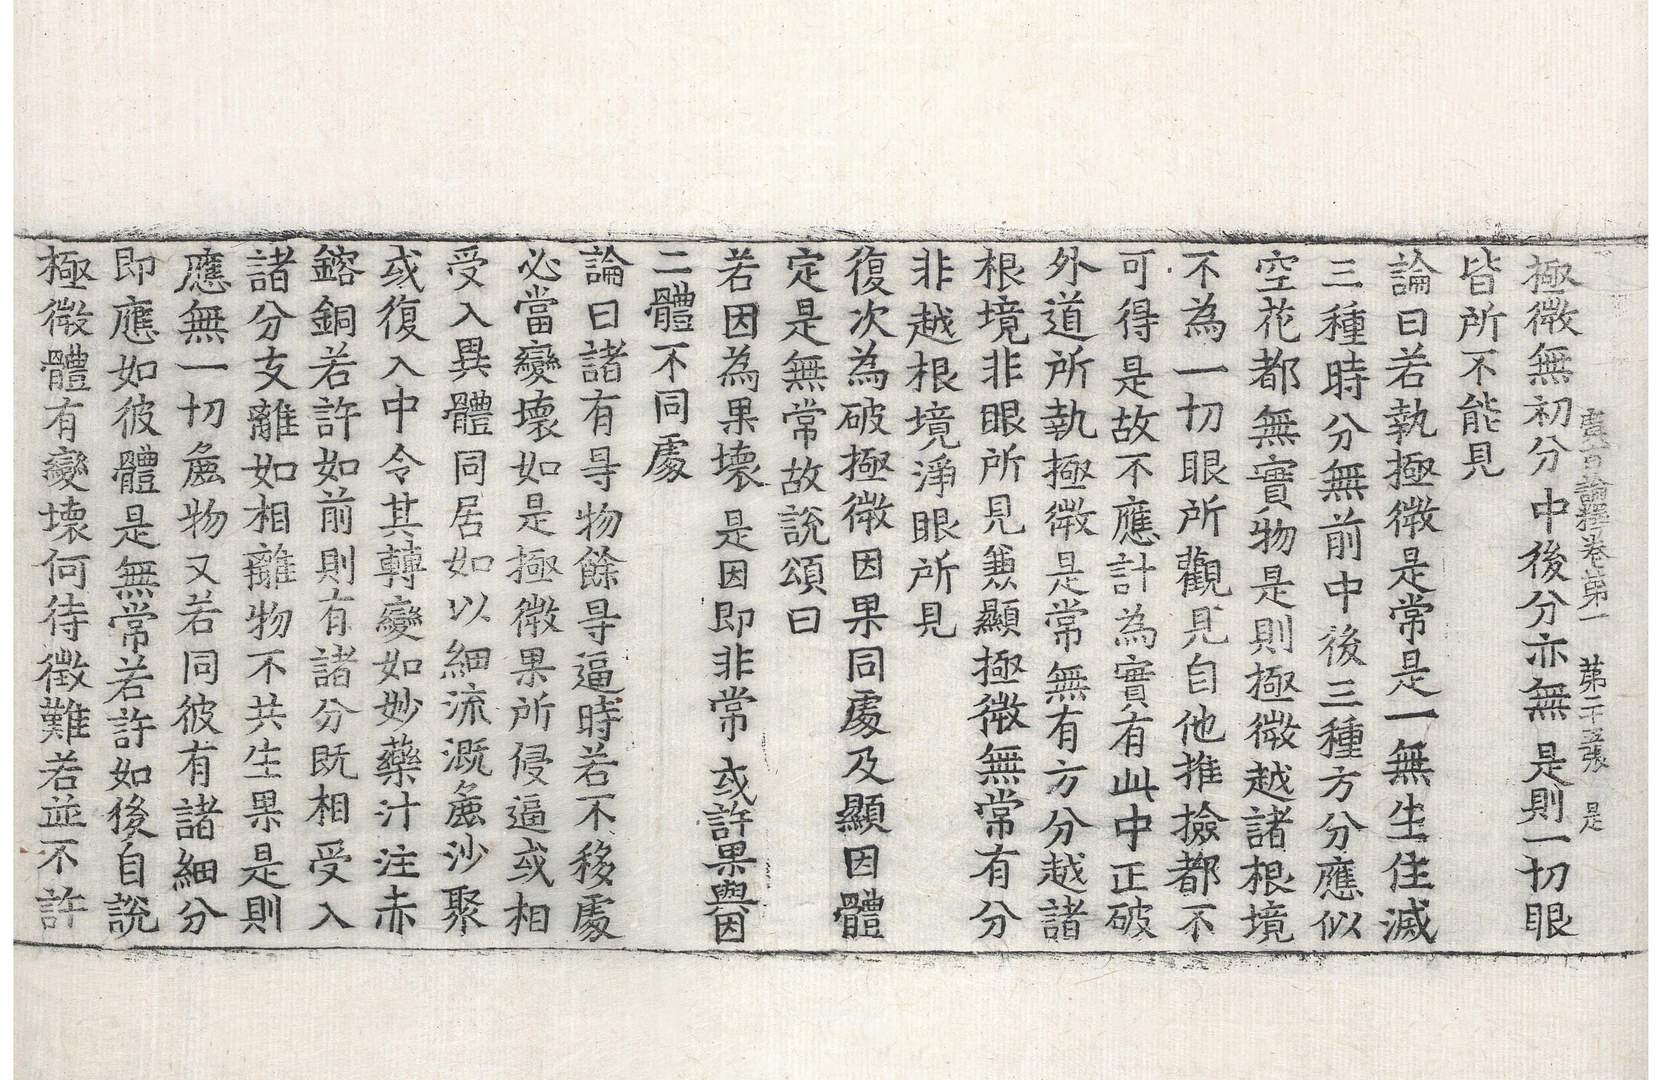 廣百論釋卷第一　第二十五張　是
極微無初分　中後分亦無　是則一切眼
皆所不能見
論曰若執極微是常是一無生住滅
三種時分無前中後三種方分應似
空花都無實物是則極微越諸根境
不為一切眼所觀見自他推撿都不
可得是故不應計為實有此中正破
外道所執極微是常無有方分越諸
根境非眼所見兼顯極微無常有分
非越根境淨眼所見
復次為破極微因果同處及顯因體
定是無常故說頌曰
若因為果壞　是因即非常　或許果與因
二體不同處
論曰諸有㝵物餘㝵逼時若不移處
必當變壞如是極微果所侵逼或相
受入異體同居如以細流溉麁沙聚
或復入中令其轉變如妙藥汁注赤
鎔銅若許如前則有諸分既相受入
諸分支離如相離物不共生果是則
應無一切麁物又若同彼有諸細分
即應如彼體是無常若許如後自說
極微體有變壞何待徵難若並不許